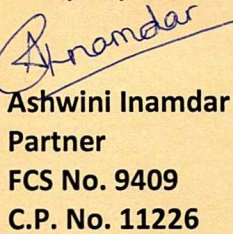 AInamdar
Ashwini Inamdar
Partner
FCS No. 9409
C.P. No. 11226